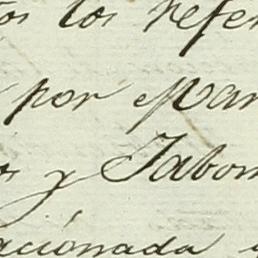 los refer
por Mar
y Tabon
acionada